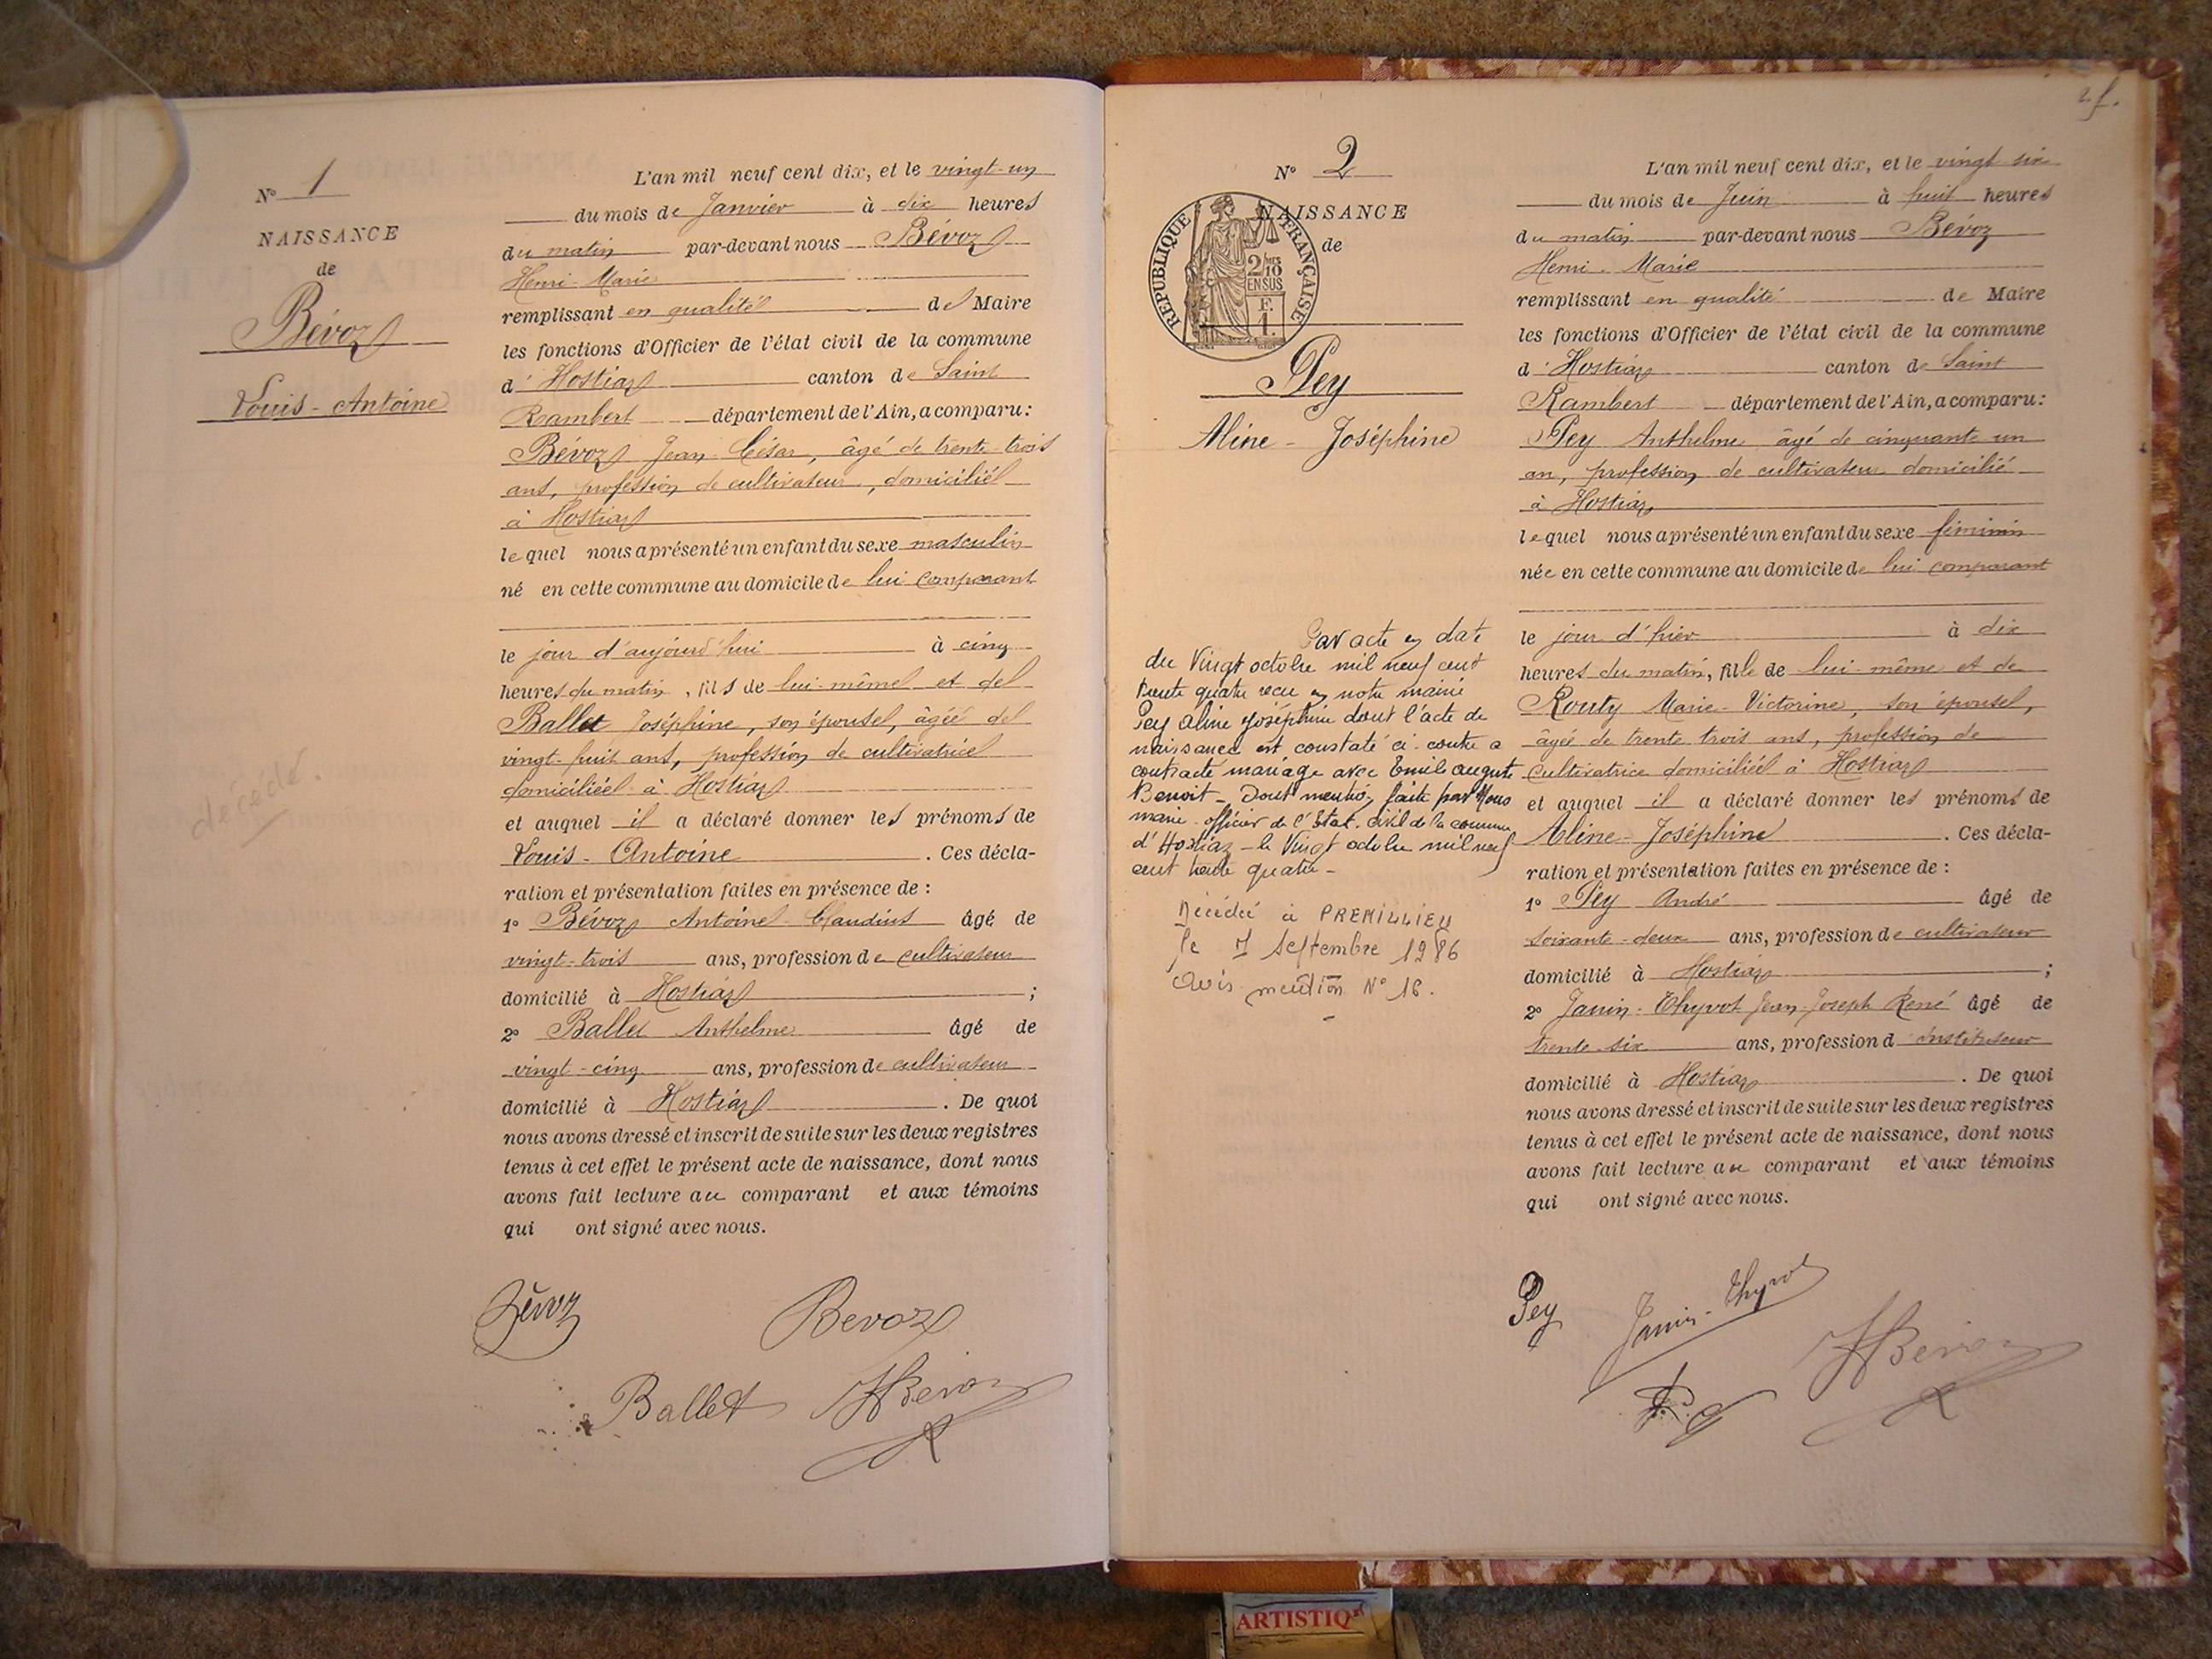 N° 1
NAISSANCE
de
Bévoz
Louis-Antoine
décédé.
L'an mil neuf cent dix, et le vingt-un
du mois de Janvier à dix heures
du matin par-devant nous Bévoz
Henri-Marie
remplissant en qualité de Maire
les fonctions d'Officier de l'état civil de la commune
d'Hostiaz canton de Saint
Rambert département de l'Ain, a comparu:
Bévoz Jean-César, âgé de trente-trois
ans, profession de cultivateur, domicilié
à Hostiaz
lequel nous a présenté un enfant du sexe masculin
né en cette commune au domicile de lui comparant
le jour d'aujourd'hui à cinq
heures du matin, fils de lui-même et de
Ballet Joséphine, son épouse, âgée de
vingt-huit ans, profession de cultivatrice
domiciliée à Hostiaz
et auquel il a déclaré donner les prénoms de
Louis-Antoine. Ces décla-
ration et présentation faites en présence de:
1° Bévoz Antoine-Claudius âgé de
vingt-trois ans, profession de cultivateur
domicilié à Hostiaz;
2° Ballet Anthelme âgé de
vingt-cinq ans, profession de cultivateur
domicilié à Hostiaz. De quoi
nous avons dressé et inscrit de suite sur les deux registres
tenus à cet effet le présent acte de naissance, dont nous
avons fait lecture au comparant et aux témoins
qui ont signé avec nous.
Bévoz Bevoz
Ballet HBévoz
2 f.
N° 2
NAISSANCE
de
REPUBLIQUE FRANÇAISE
2/10
EN SUS
F.
1.
Pey
Aline-Joséphine
Par acte en date
du Vingt octobre mil neuf cent
trente quatre reçu en notre mairie
Pey Aline Joséphine dont l'acte de
naissance est constaté ci-contre a
contracté mariage avec Emile Auguste
Benoit - Dont mention faite par Nous
maire-officier de l'Etat-civil de la commune
d'Hostiaz - le Vingt octobre mil neuf
cent trente quatre -
Décédée à PREMILLIEU
le 7 Septembre 1986
Avis mention N° 16.
L'an mil neuf cent dix, et le vingt-six
du mois de Juin à huit heures
du matin par-devant nous Bévoz
Henri-Marie
remplissant en qualité de Maire
les fonctions d'Officier de l'état civil de la commune
d'Hostiaz canton de Saint
Rambert département de l'Ain, a comparu:
Pey Anthelme âgé de cinquante un
an, profession de cultivateur domicilié
à Hostiaz
lequel nous a présenté un enfant du sexe féminin
née en cette commune au domicile de lui comparant
le jour d'hier à dix
heures du matin, fille de lui-même et de
Routy Marie-Victorine, son épouse,
âgée de trente trois ans, profession de
cultivatrice domiciliée à Hostiaz
et auquel il a déclaré donner les prénoms de
Aline-Joséphine. Ces décla-
ration et présentation faites en présence de:
1° Pey André âgé de
soixante-deux ans, profession de cultivateur
domicilié à Hostiaz;
2° Janin-Thyvot Jean-Joseph René âgé de
trente-six ans, profession d'instituteur
domicilié à Hostiaz. De quoi
nous avons dressé et inscrit de suite sur les deux registres
tenus à cet effet le présent acte de naissance, dont nous
avons fait lecture au comparant et aux témoins
qui ont signé avec nous.
Pey Janin-Thyvot
HBévoz
ARTISTIQ